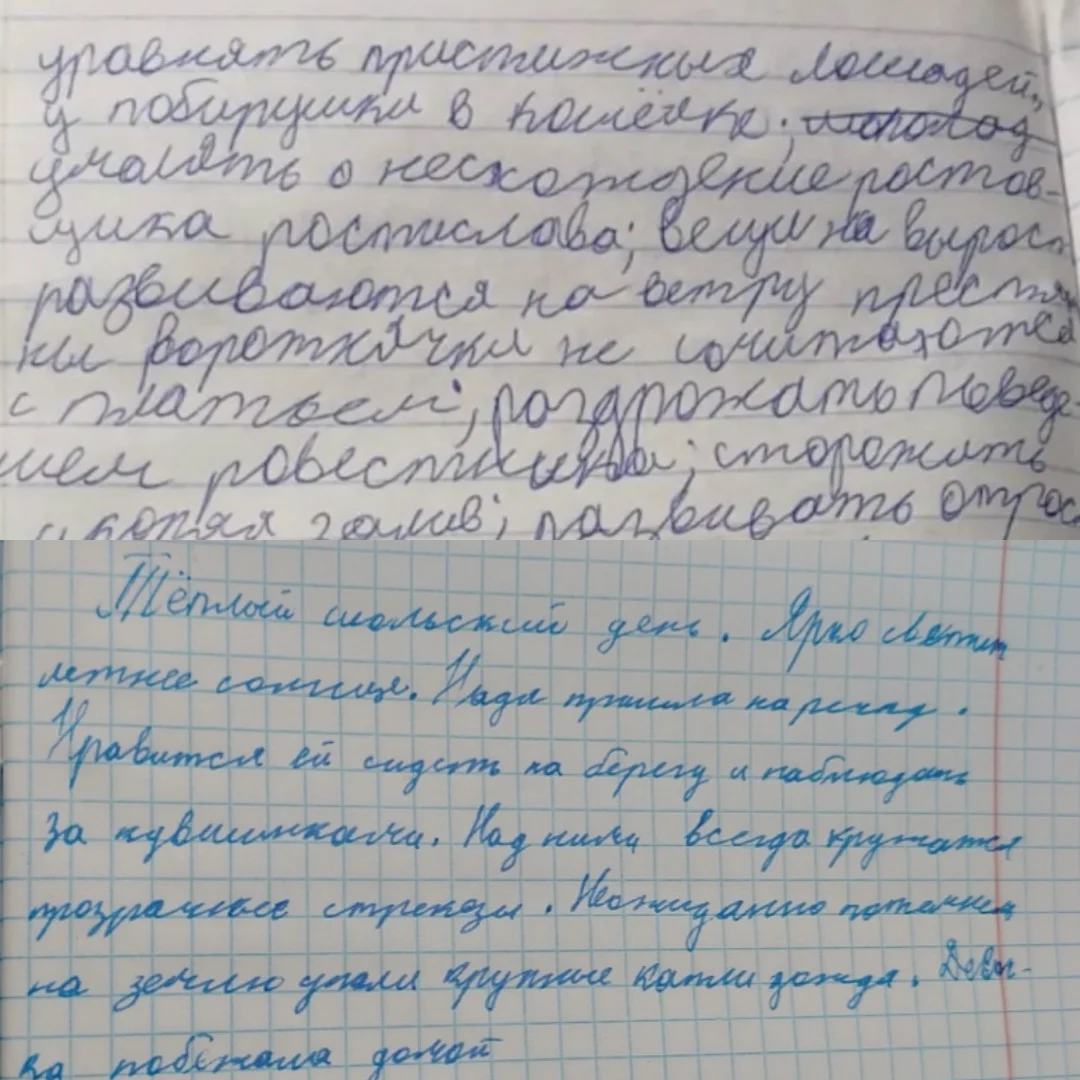 уравнять пристижных лошадей,
у побирушки в кошёлке;
умолять о несхождение ростов-
щика ростислава; вещи на вырост
развиваются на ветру
воротнички не сочитаются
с платьем; раздрожать поведе-
нием ровестника; сторожить
копая залив; развивать
Тёплый июльский день. Ярко светит
летнее солнце. Надя пришла на речку.
Нравится ей сидеть на берегу и наблюдать
за кувшинками. Над ними всегда кружатся
прозрачные стрекозы. Неожиданно потемнело
на землю упали крупные капли дождя. Девоч-
ка побежала домой